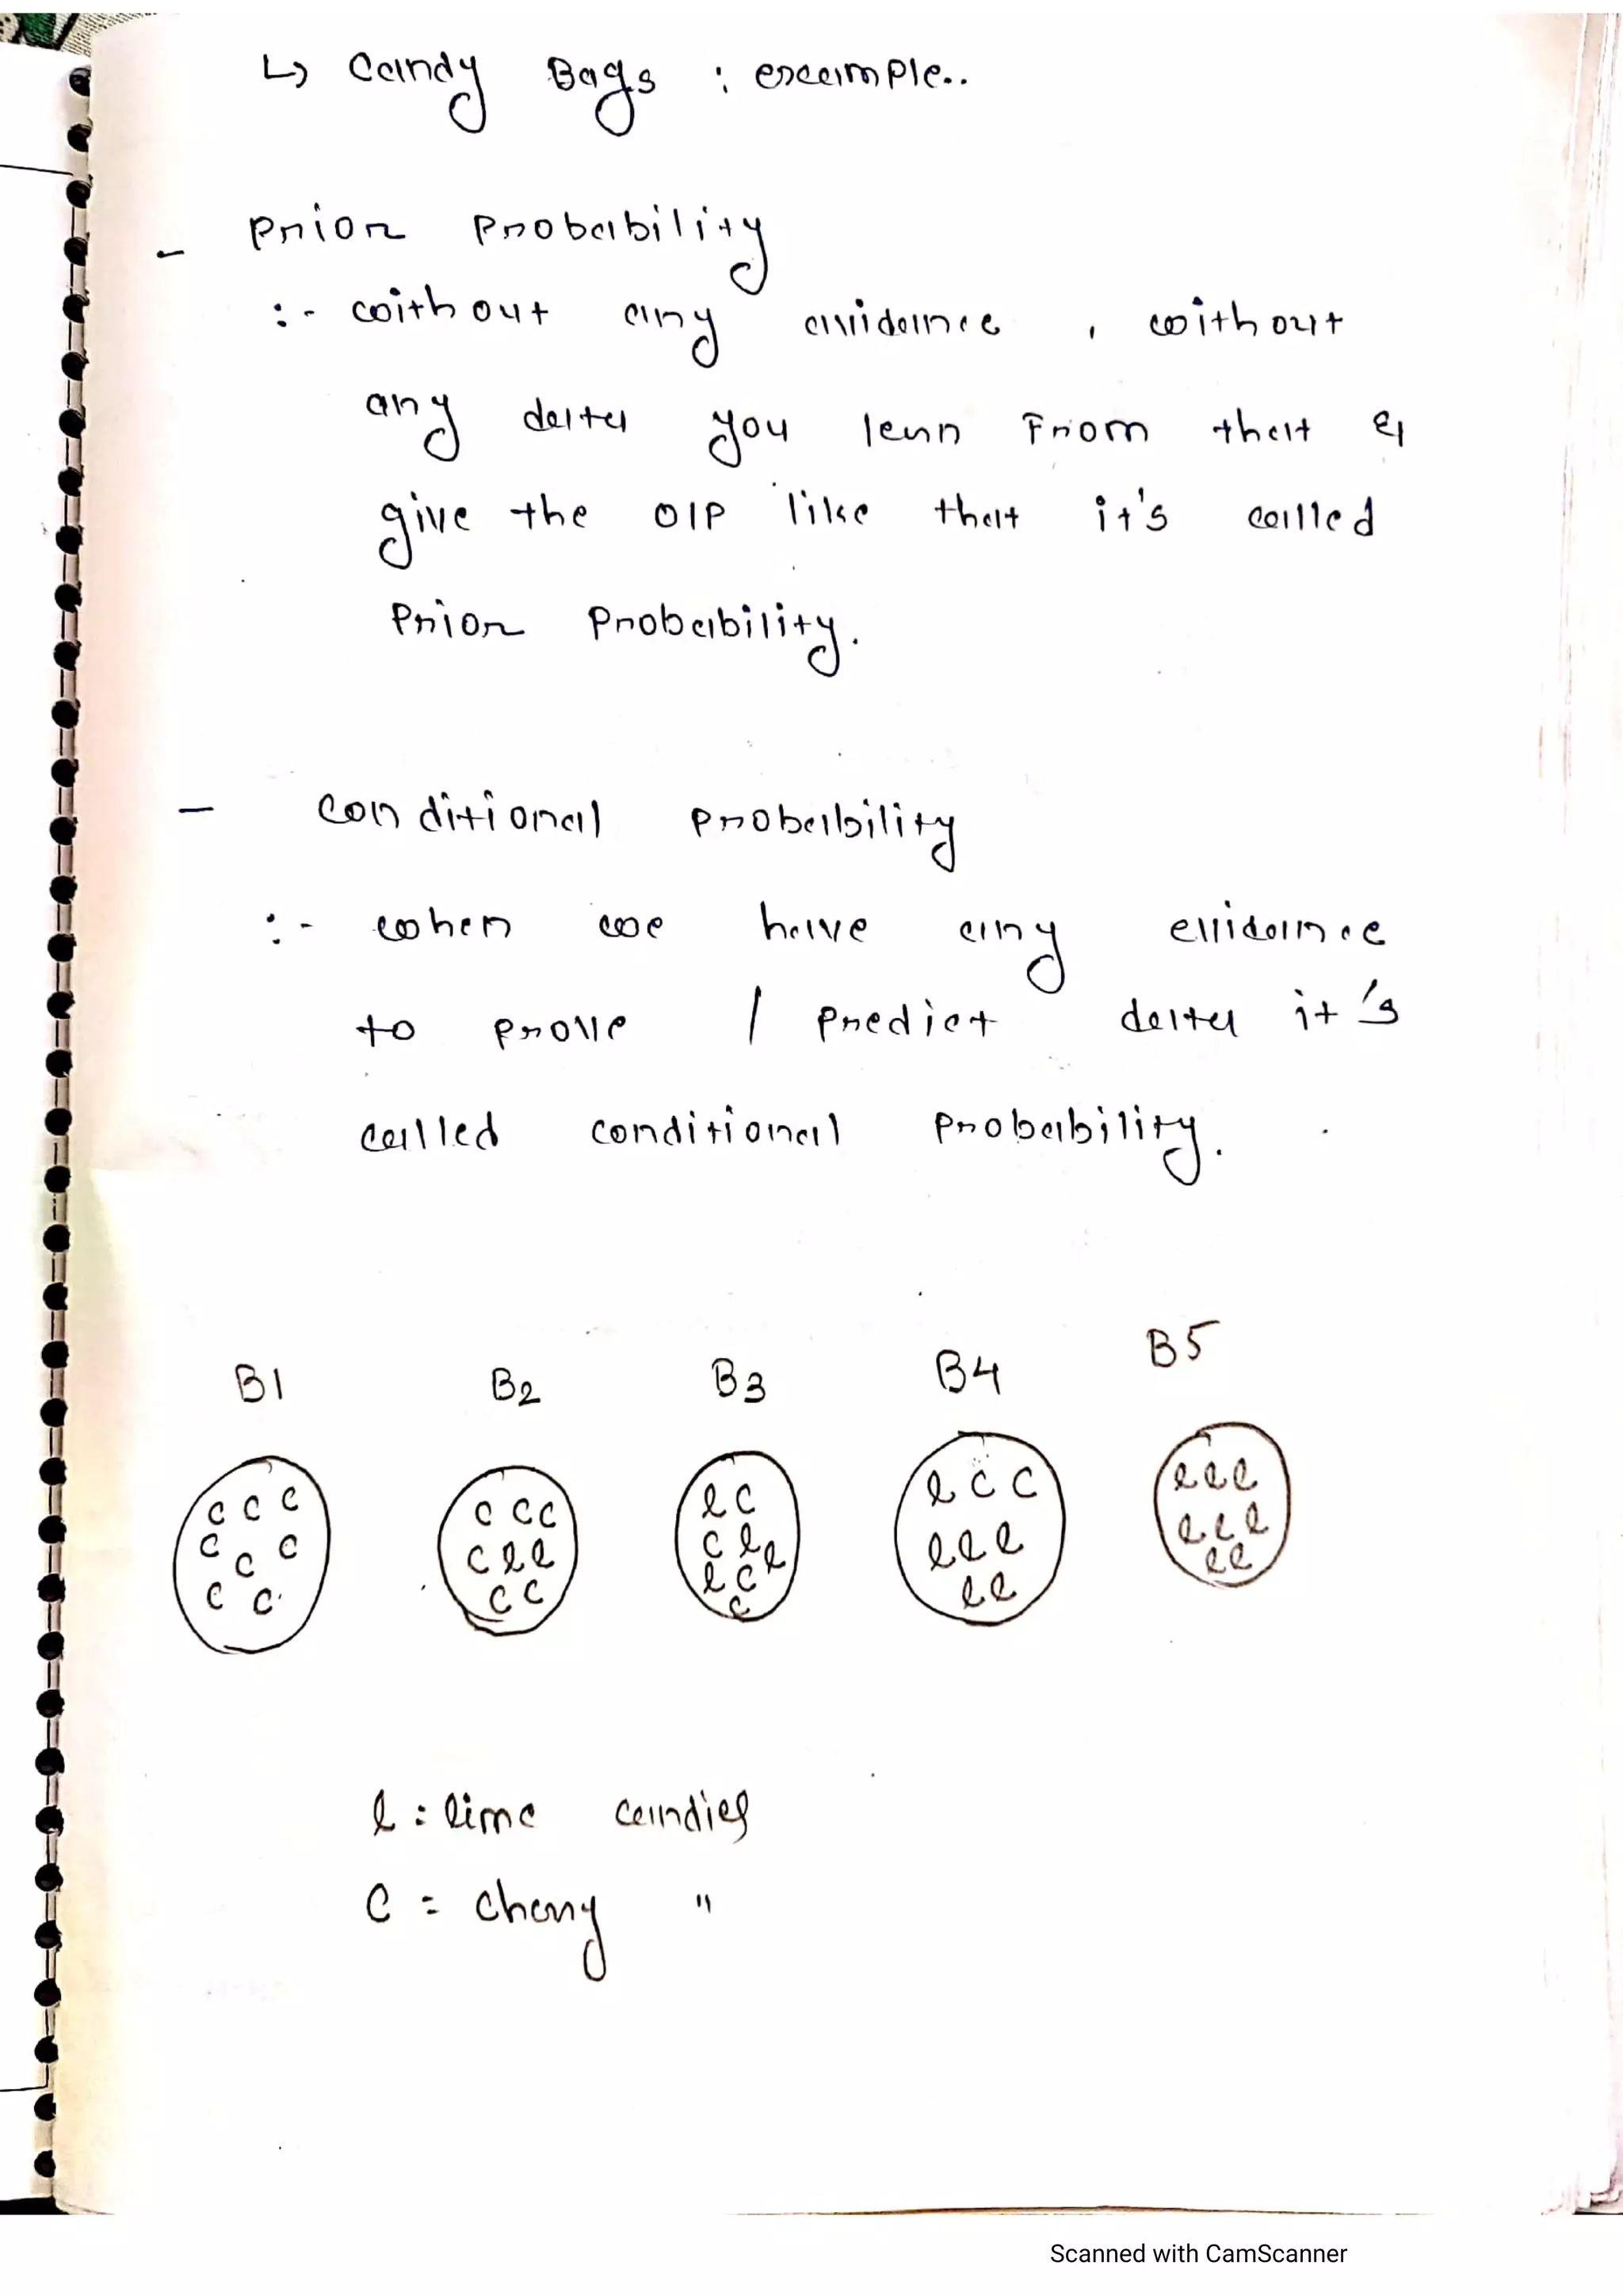 ↳ Candy Bags : example..
- Prior Probability
:- without any evidance , without
any data you lern From that &
give the O/P like that it's called
Prior Probability.
- Conditional Probability
:- when we have any evidance
to prove / predict data it's
called conditional Probability.
B1 B2 B3 B4 B5
c c c
c c c
c c
c c c
c l l
c c
l c
c l
l c l
c
l c c
l l l
l l
l l l
l l l
l l
l : lime candies
C = cherry "
Scanned with CamScanner